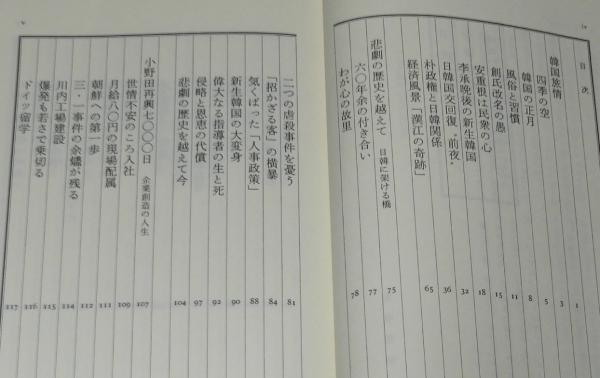 iv
目次
韓国旅情 1
四季の空 3
韓国の正月 5
風俗と習慣 8
創氏改名の愚 11
安重根は民衆の心 15
李承晩後の新生韓国 18
日韓国交回復〝前夜〟 32
朴政権と日韓関係 36
経済風景「漢江の奇跡」 65
悲劇の歴史を越えて 日韓に架ける橋 75
六〇年余の付き合い 77
わが心の故里 78
v
二つの虐殺事件を憂う 81
「招かざる客」の横暴 84
気くばった「人事政策」 88
新生韓国の大変身 90
偉大なる指導者の生と死 92
侵略と恩恵の代償 97
悲劇の歴史を越えて今 104
小野田再興七〇〇〇日 企業創造の人生 107
世情不安のころ入社 109
月給八〇円の現場配属 111
朝鮮への第一歩 112
三・一事件の余燼が残る 114
川内工場建設 115
爆発も若さで乗切る 116
ドイツ留学 117